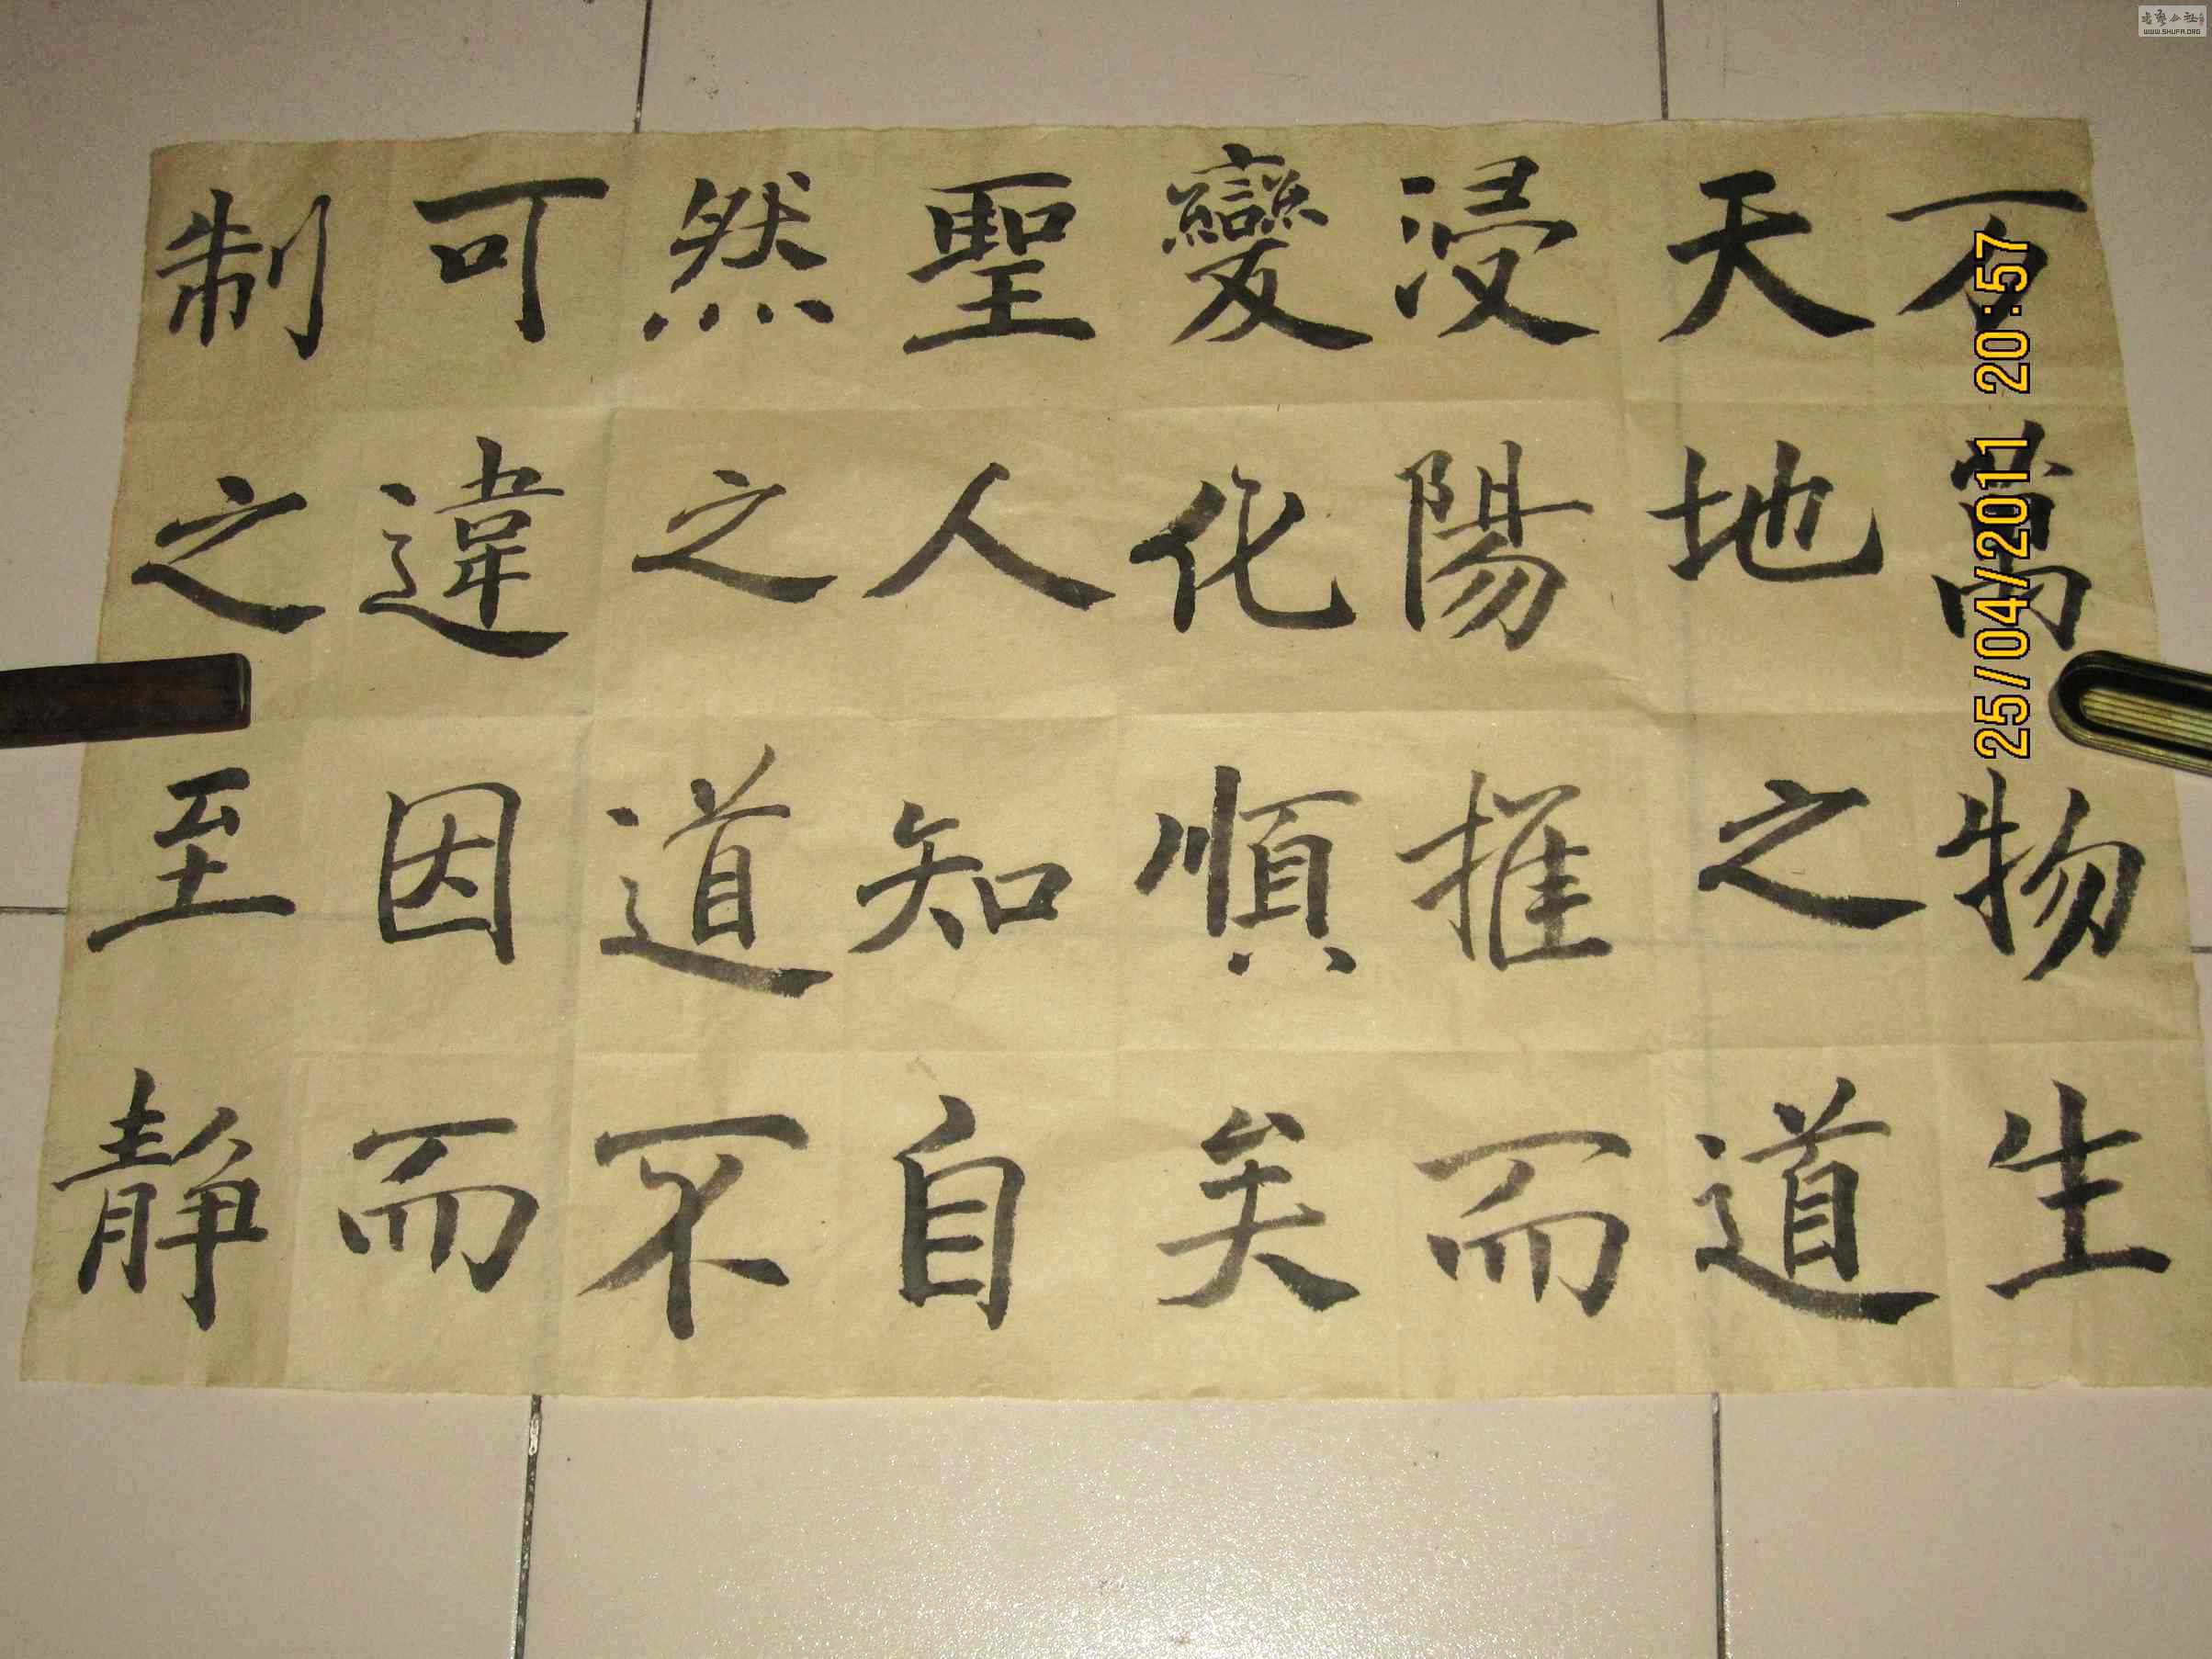 万萬物生
天地之道
浸陽推而
變化順矣
聖人知自
然之道不
可違因而
制之至静
25/04/2011 20:57
WWW.SHUFA.ORG